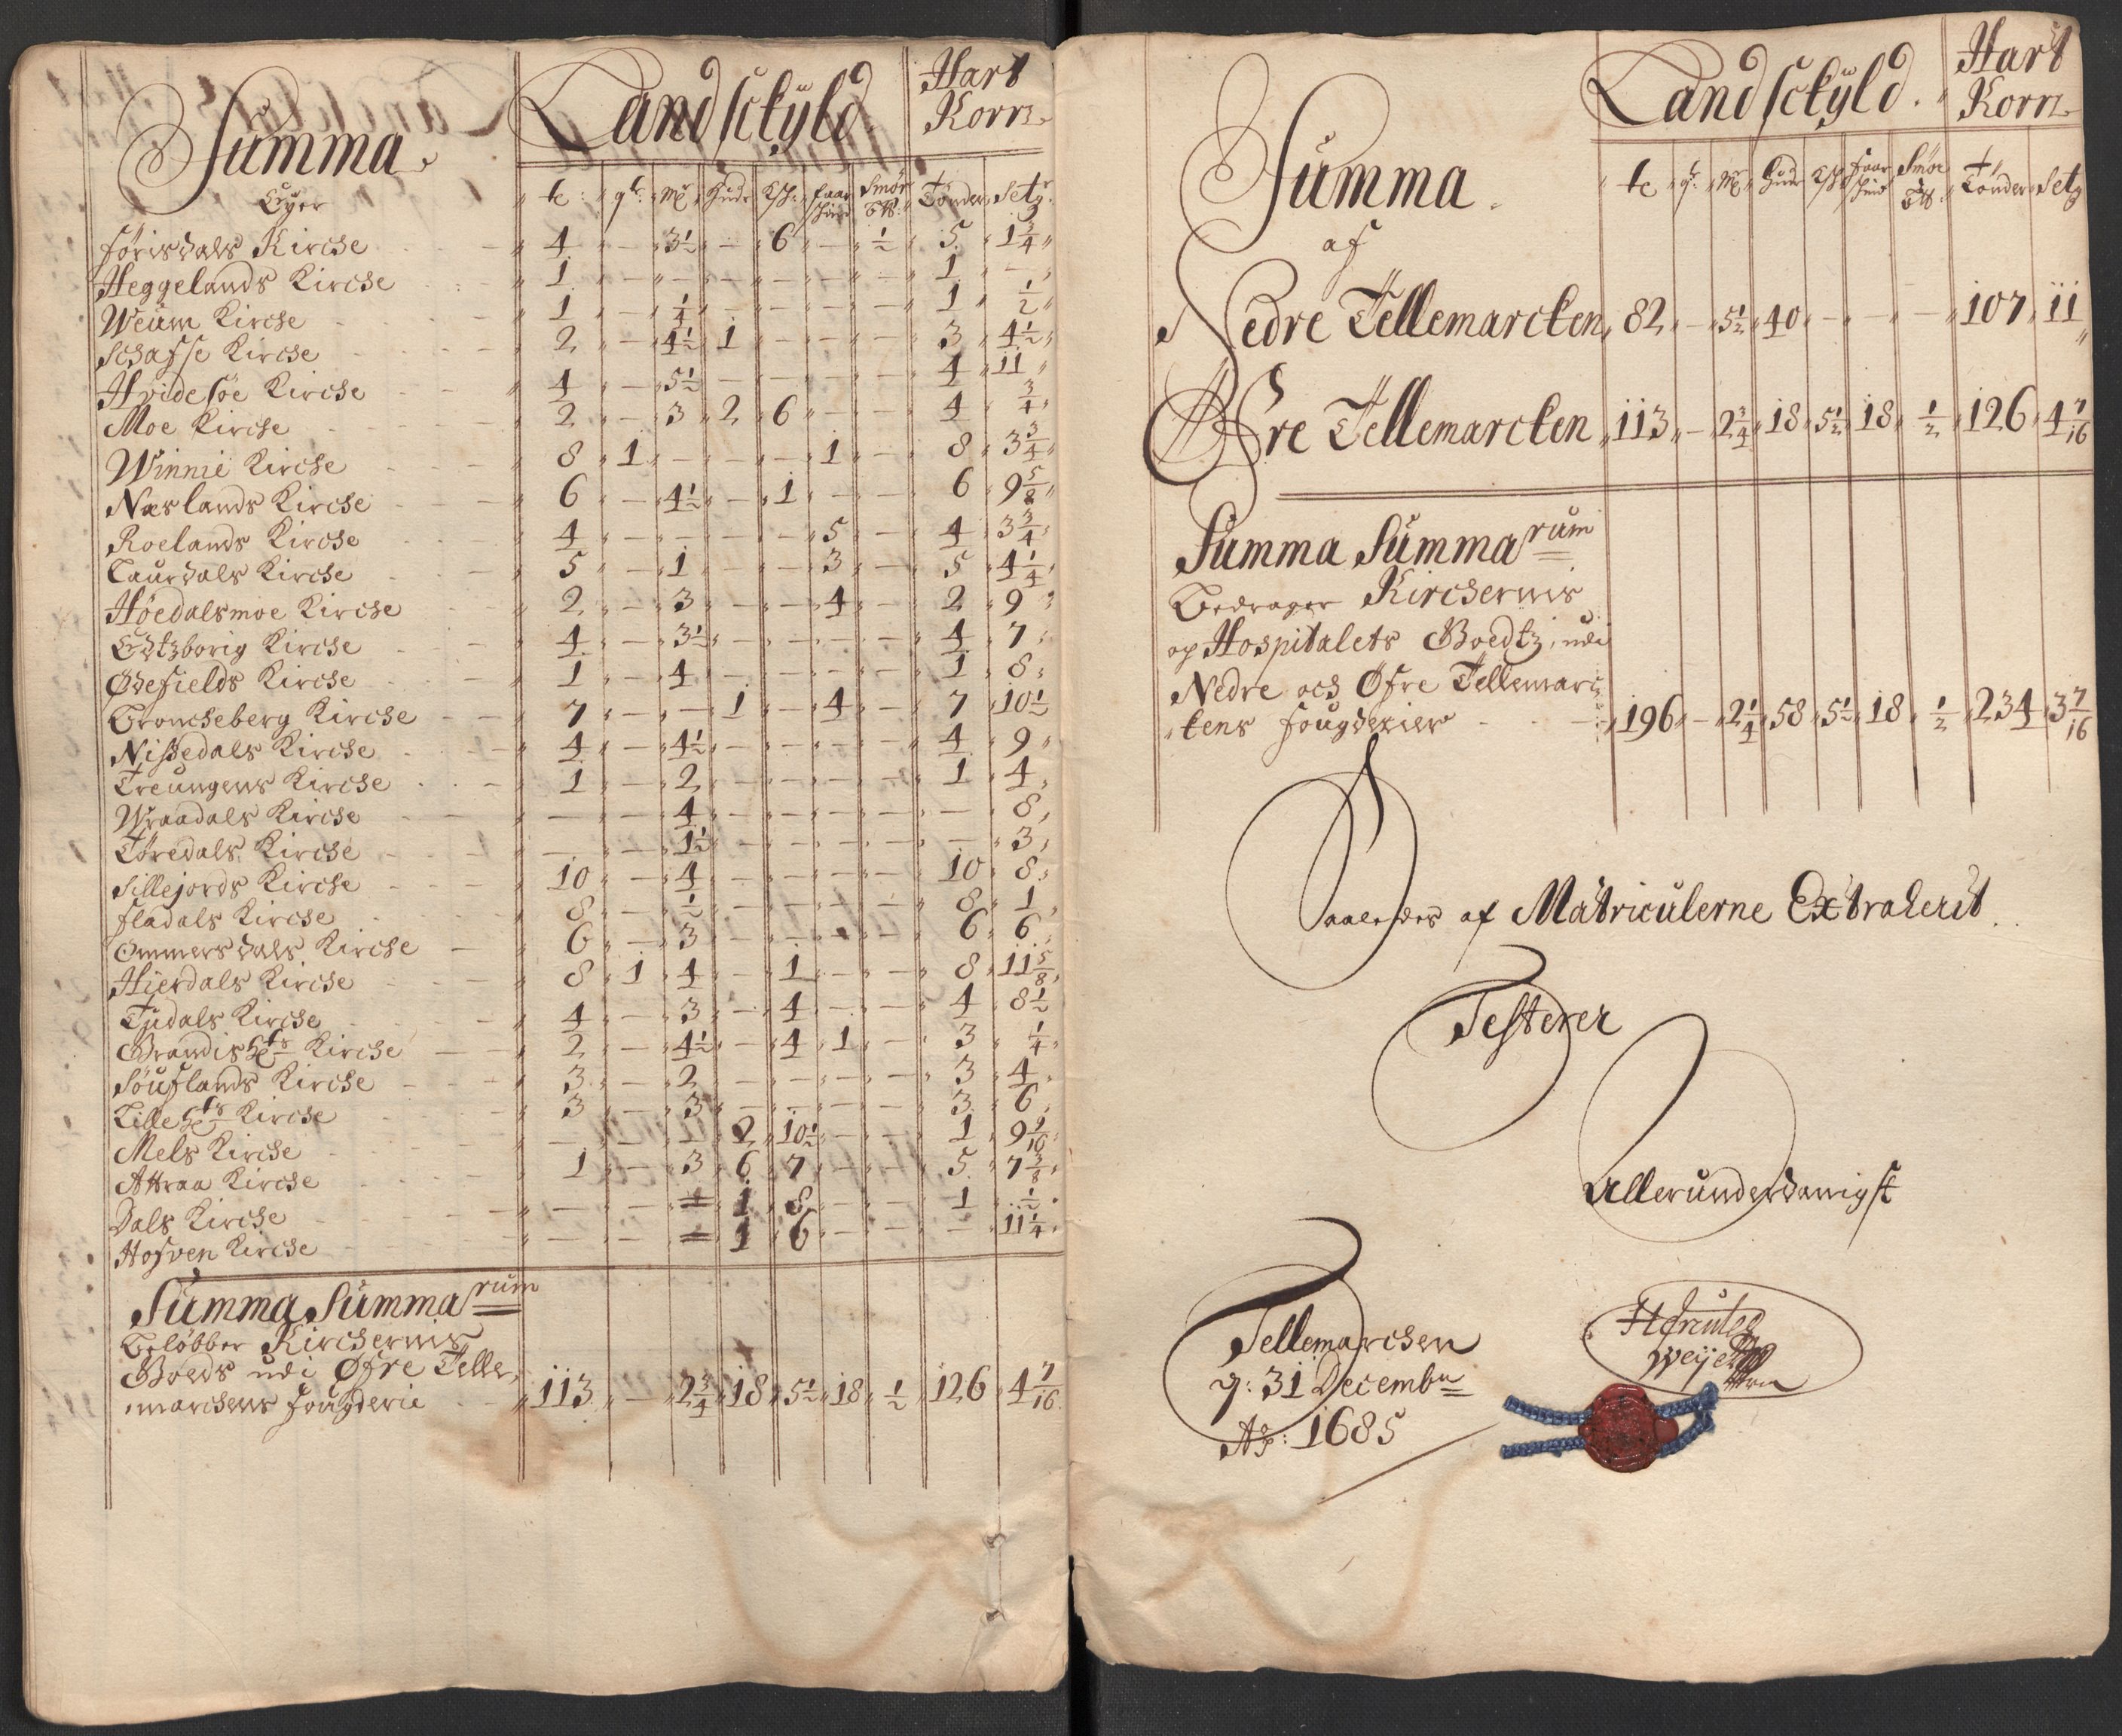 Summa Landsckyld Hart Korn
Eyer tℓ: qr: Mℓ Hude Ksk: faar skind Smør Tønder Setg
Førisdals Kirche 4 — 3½ — 6 — ½ 5 1¾
Heggelands Kirche 1 — — — — — — 1 —
Weum Kirche 1 — ¼ — — — — 1 ½
Schafse Kirche 2 — 4½ 1 — — — 3 4½
Hvidesøe Kirche 4 — 5½ — — — — 4 11
Moe Kirche 2 — 3 2 6 — — 4 ¾
Winnie Kirche 8 1 — — — 1 — 8 3¾
Næslands Kirche 6 — 4½ — 1 — — 6 9⅝
Roelands Kirche 4 — — — — 5 — 4 3¾
Laurdals Kirche 5 — 1 — — 3 — 5 4¼
Høedalsmoe Kirche 2 — 3 — — 4 — 2 9
Eydtzborig Kirche 4 — 3½ — — — — 4 7
Ødefields Kirche 1 — 4 — — — — 1 8
Broncheberg Kirche 7 — — 1 — 4 — 7 10½
Nissedals Kirche 4 — 4½ — — — — 4 9
Treungens Kirche 1 — 2 — — — — 1 4
Wraadals Kirche — — 4 — — — — — 8
Tøredals Kirche — — 1½ — — — — — 3
Sillejords Kirche 10 — 4 — — — — 10 8
Fladals Kirche 8 — ½ — — — — 8 1
Ommersdals Kirche 6 — 3 — — — — 6 6
Hierdals Kirche 8 1 4 — 1 — — 8 11⅝
Tudals Kirche 4 — 3 — 4 — — 4 8½
Grandishers Kirche 2 — 4½ — 4 1 — 3 ¼
Søuflands Kirche 3 — 2 — — — — 3 4
Lillehers Kirche 3 — 3 — — — — 3 6
Mels Kirche — — — 2 10½ — — 1 9 1/16
Attraa Kirche 1 — 3 6 7 — — 5 7⅜
Dals Kirche — — — 1 8 — — 1 ½
Hofven Kirche — — — 1 6 — — — 11¼
Summa Summarum
Beløbber Kirchernis
Goeds udi Øfre Telle
marchens fougderie 113 — 2¾ 18 5½ 18 ½ 126 4 7/16
Landsckyld. Hart Korn
Summa tℓ qr: Mℓ Hude Ksk faar skind Smør Tønder Setg
af
Nedre Tellemarcken 82 — 5½ 40 — — — 107 11
Øfre Tellemarcken 113 — 2¾ 18 5½ 18 ½ 126 4 7/16
Summa Summarum
Bedrager Kirchernis
og Hospitalets Goedtz, udi
Nedre och Øfre Tellemarc
kens fougderier 196 — 2¼ 58 5½ 18 ½ 234 3 7/16
Saaledes af Matriculerne Extraherit.
Testerer
Allerunderdanigst
Tellemarchen
d: 31 Decembr
Ao: 1685